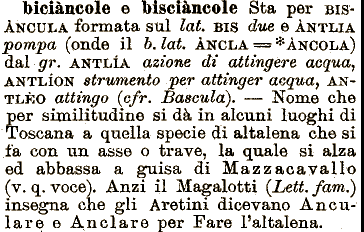 biciàncole e bisciàncole Sta per BIS-
ÀNCULA formata sul lat. BIS due e ÀNTLIA
pompa (onde il b. lat. ÀNCLA = *ÀNCOLA)
dal gr. ANTLÍA azione di attingere acqua,
ANTLÍON strumento per attinger acqua, AN-
TLÈO attingo (cfr. Bascula). — Nome che
per similitudine si dà in alcuni luoghi di
Toscana a quella specie di altalena che si
fa con un asse o trave, la quale si alza
ed abbassa a guisa di Mazzacavallo
(v. q. voce). Anzi il Magalotti (Lett. fam.)
insegna che gli Aretini dicevano Ancu-
lare e Anclare per Fare l'altalena.